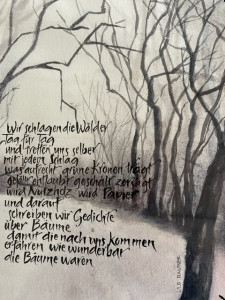 Wir schlagen die Wälder
Tag für Tag
und treffen uns selber
mit jedem Schlag
was aufrecht grüne Kronen trägt
gefällt entlaubt geschält zersägt
wird Nutzholz wird Papier
und darauf
schreiben wir Gedichte
über Bäume
damit die nach uns kommen
erfahren wie wunderbar
die Bäume waren